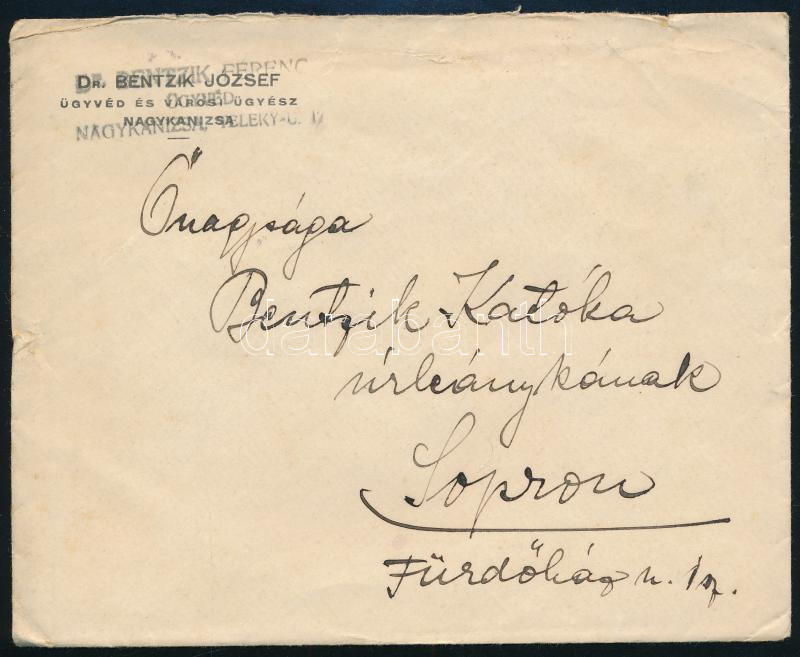 DR. BENTZIK FERENC
DR. BENTZIK JÓZSEF
ÜGYVÉD
ÜGYVÉD ÉS VÁROSI ÜGYÉSZ
NAGYKANIZSA
NAGYKANIZSA, TELEKY-U.
Őnagysága
Bentzik Katóka
úrleánykának
Sopron
Fürdőház u. 1 sz.
darabanth